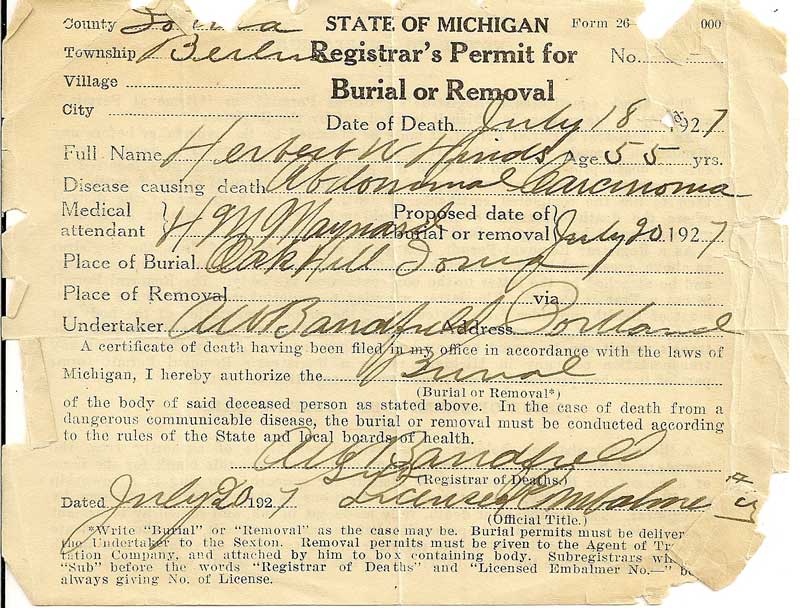 County Ionia STATE OF MICHIGAN Form 26- 000
Township Berlin Registrar's Permit for No.
Village Burial or Removal
City Date of Death July 18 1927
Full Name Herbert W Hinds Age 55 yrs.
Disease causing death Abdominal Carcinoma
Medical attendant H M Maynard Proposed date of burial or removal July 20 1927
Place of Burial Oak Hill Ionia
Place of Removal via
Undertaker A W Bandfield Address Portland
A certificate of death having been filed in my office in accordance with the laws of
Michigan, I hereby authorize the Burial
(Burial or Removal*)
of the body of said deceased person as stated above. In the case of death from a
dangerous communicable disease, the burial or removal must be conducted according
to the rules of the State and local boards of health.
Bandfield
Sub (Registrar of Deaths.)
Dated July 20 1927 Licensed Embalmer
(Official Title.)
*Write "Burial" or "Removal" as the case may be. Burial permits must be deliver
the Undertaker to the Sexton. Removal permits must be given to the Agent of Tr
tation Company, and attached by him to box containing body. Subregistrars w
"Sub" before the words "Registrar of Deaths" and "Licensed Embalmer No.—" b
always giving No. of License.